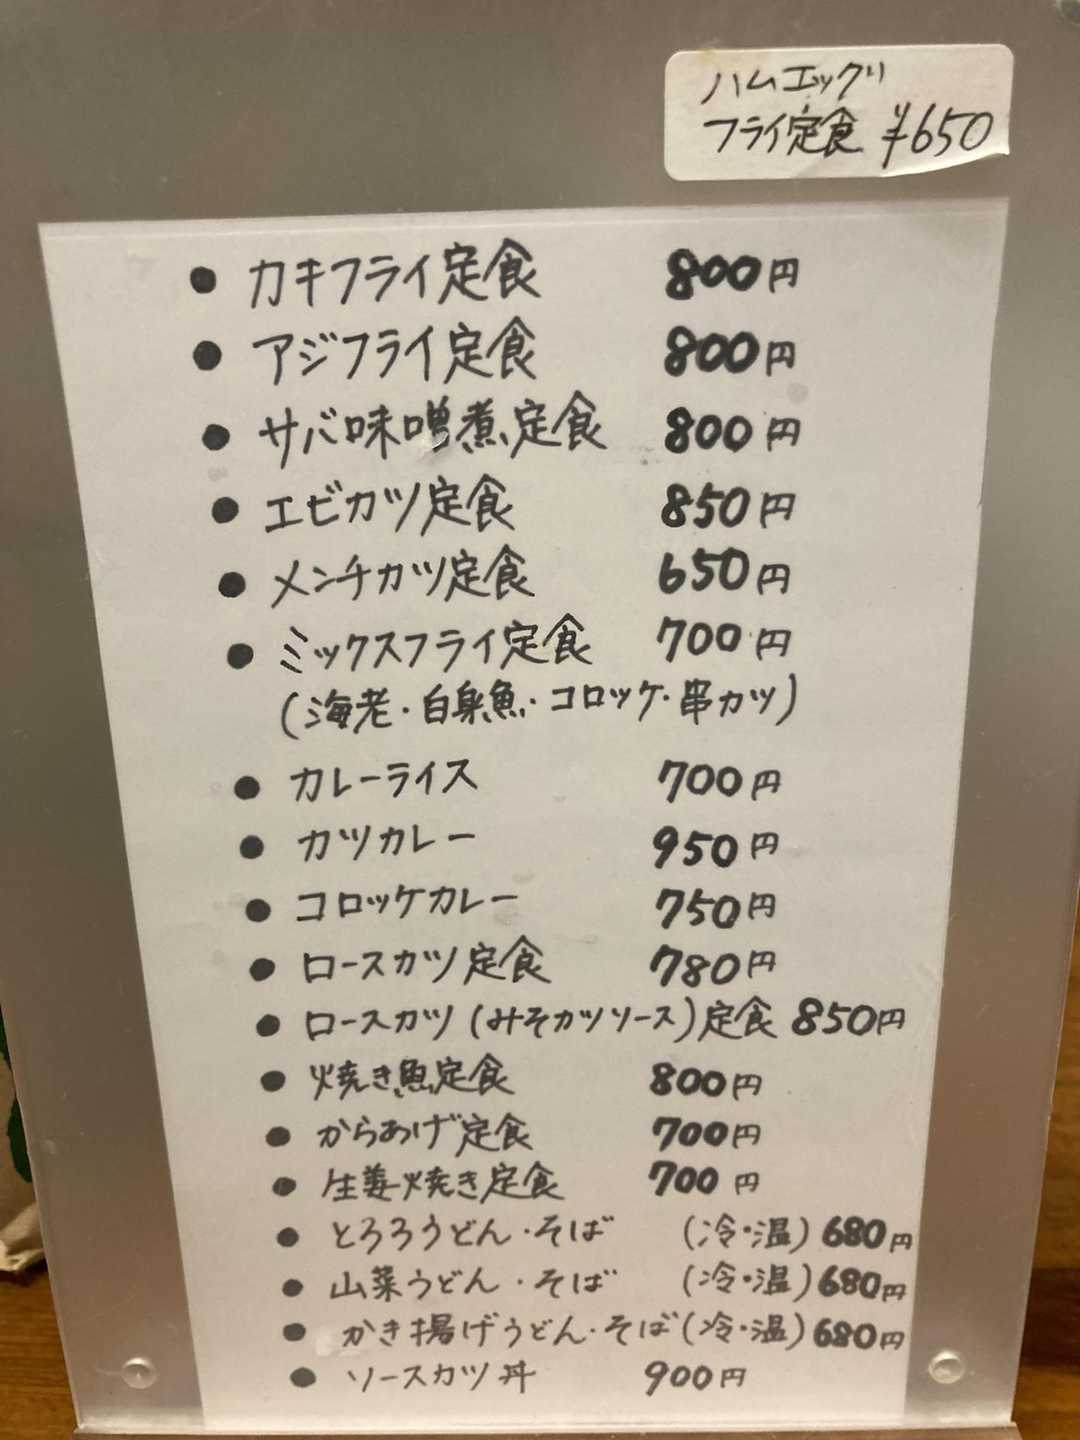 ハムエッグ
フライ定食 ¥650
● カキフライ定食 800円
● アジフライ定食 800円
● サバ味噌煮定食 800円
● エビカツ定食 850円
● メンチカツ定食 650円
● ミックスフライ定食 700円
(海老・白身魚・コロッケ・串カツ)
● カレーライス 700円
● カツカレー 950円
● コロッケカレー 750円
● ロースカツ定食 780円
● ロースカツ(みそカツソース)定食 850円
● 焼き魚定食 800円
● からあげ定食 700円
● 生姜焼き定食 700円
● とろろうどん・そば (冷・温) 680円
● 山菜うどん・そば (冷・温) 680円
● かき揚げうどん・そば(冷・温) 680円
● ソースカツ丼 900円